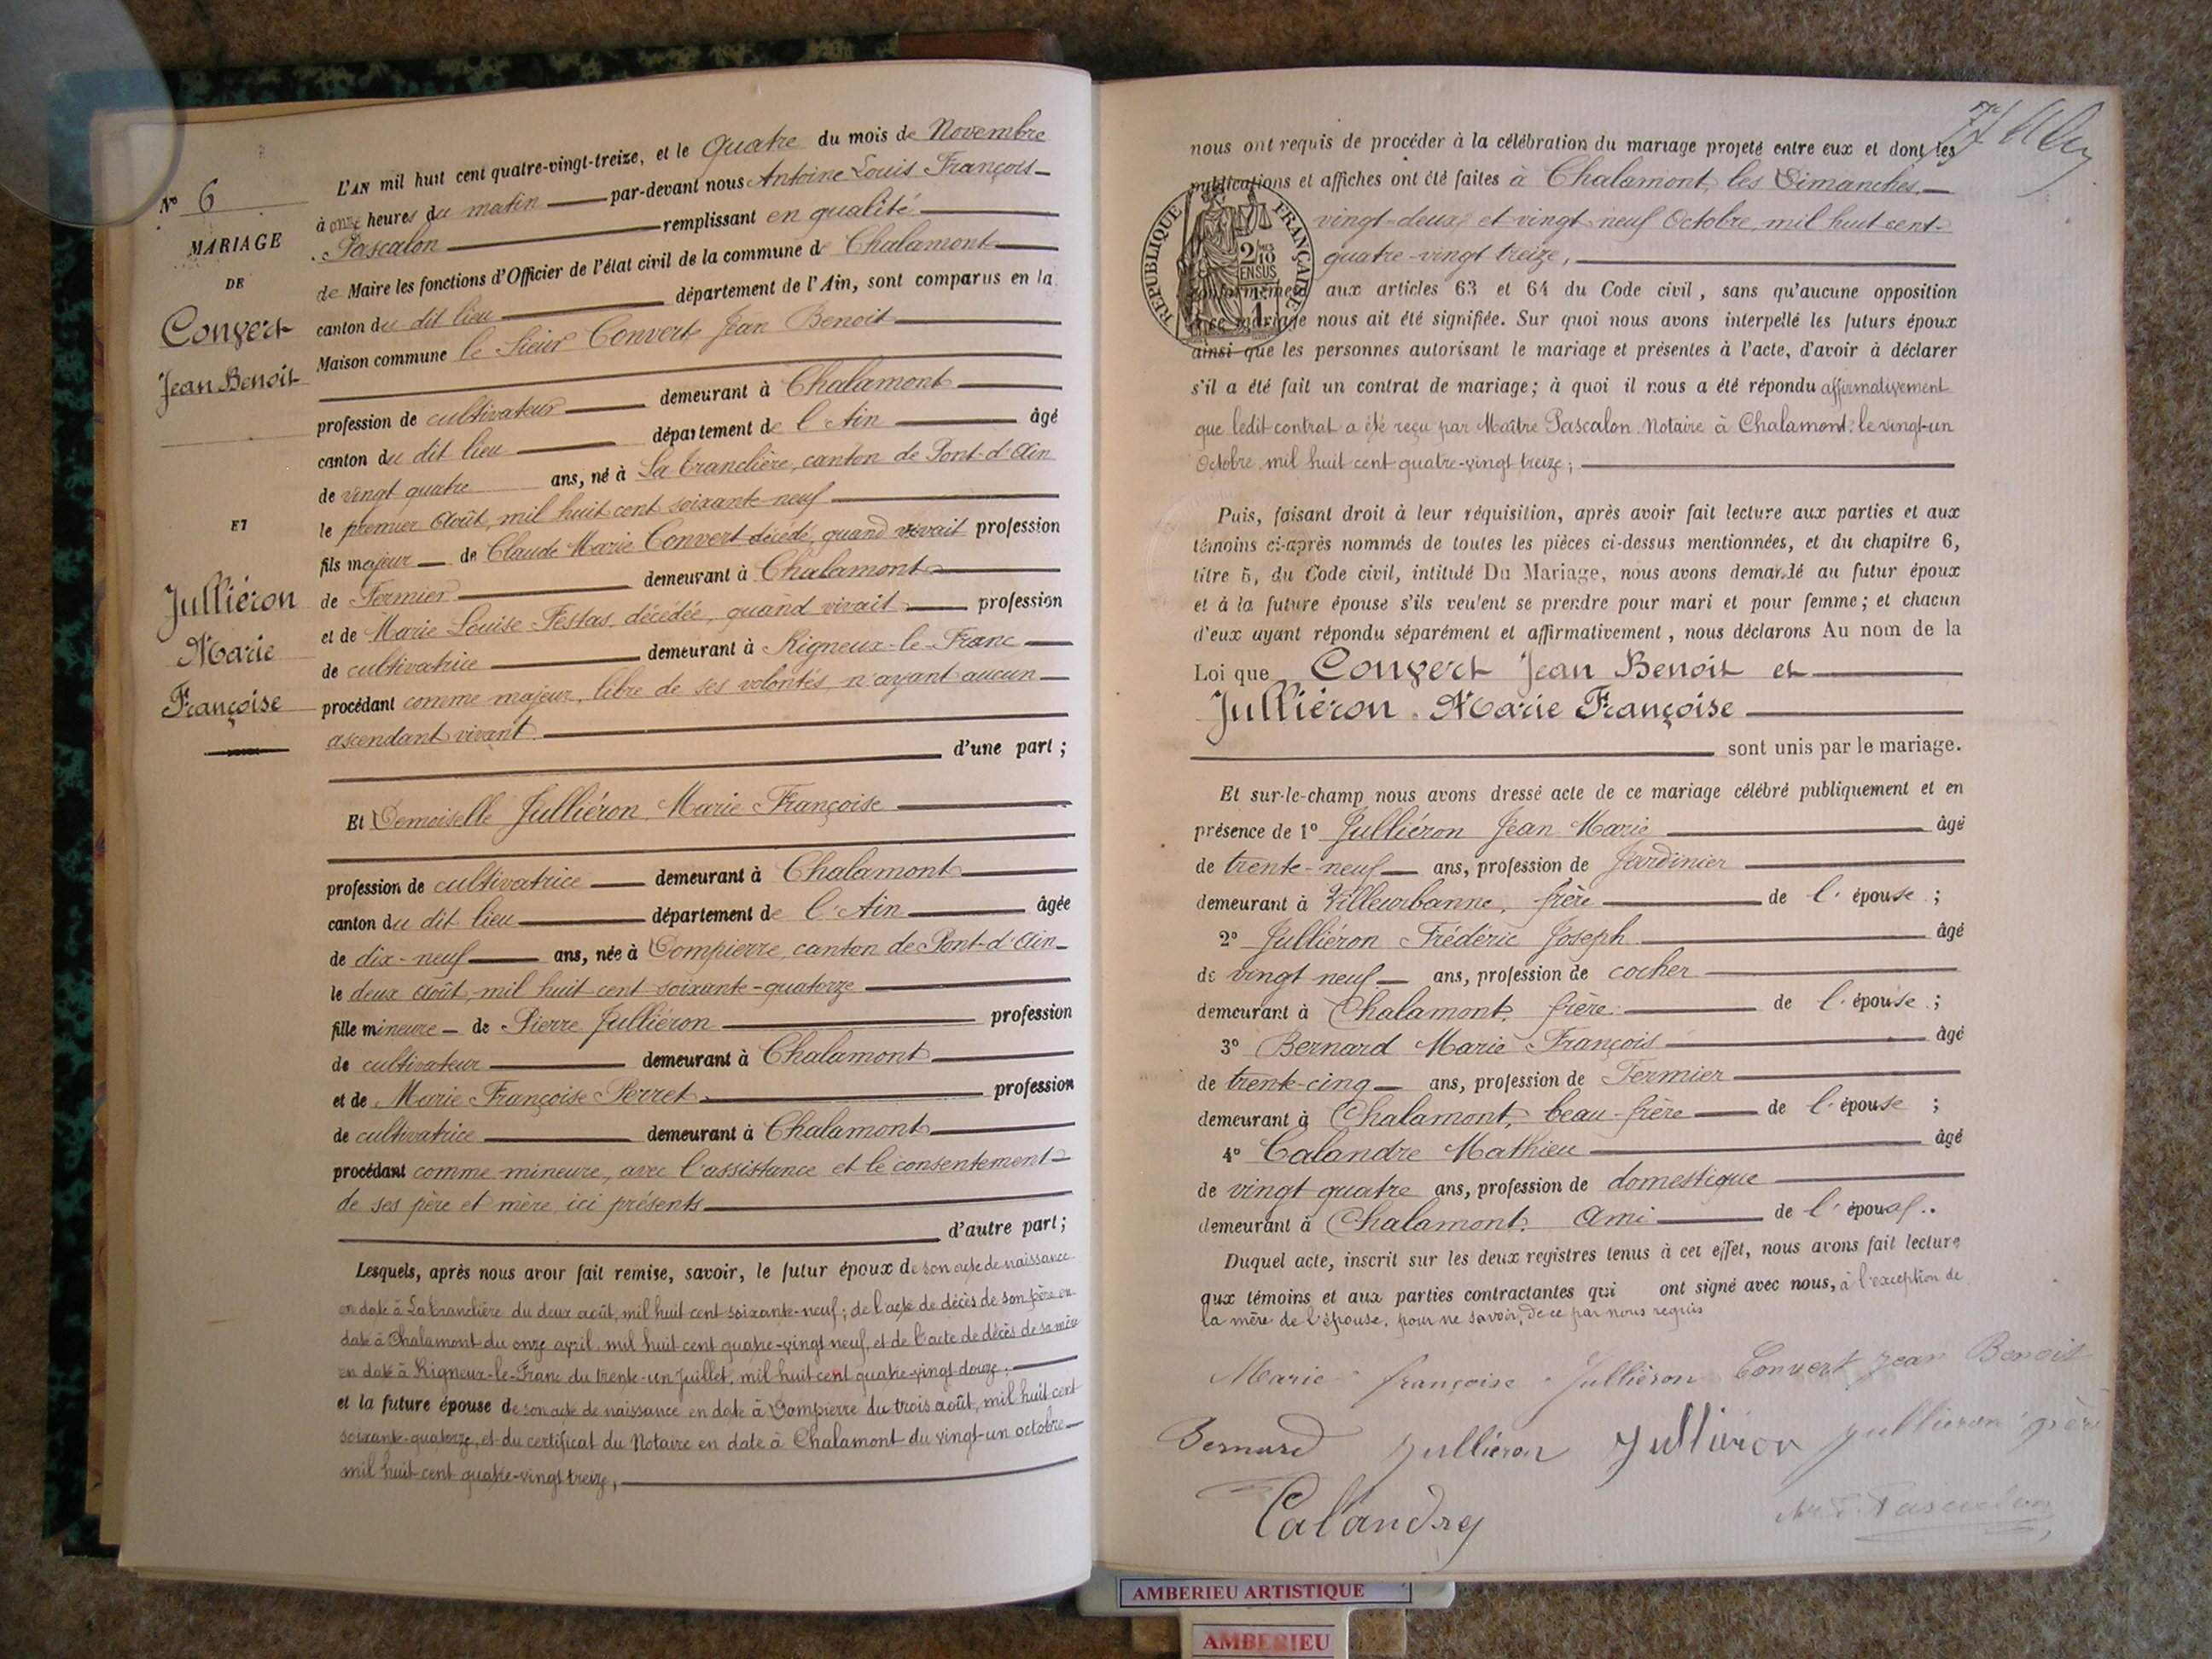 N° 6
MARIAGE
DE
Convert
Jean Benoit
ET
Julliéron
Marie
Françoise
L'AN mil huit cent quatre-vingt-treize, et le Quatre du mois de Novembre
à onze heures du matin par-devant nous Antoine Louis François
Pascalon remplissant en qualité
de Maire les fonctions d'Officier de l'état civil de la commune de Chalamont
canton du dit lieu département de l'Ain, sont comparus en la
Maison commune le Sieur Convert Jean Benoit
profession de cultivateur demeurant à Chalamont
canton du dit lieu département de l'Ain âgé
de vingt quatre ans, né à La Tranclière, canton de Pont-d'Ain
le premier Août, mil huit cent soixante-neuf
fils majeur de Claude Marie Convert décédé, quand vivait profession
de Fermier demeurant à Chalamont
et de Marie Louise Festas décédée, quand vivait profession
de cultivatrice demeurant à Rigneux-le-Franc
procédant comme majeur, libre de ses volontés, n'ayant aucun
ascendant vivant
d'une part ;
Et Demoiselle Julliéron, Marie Françoise
profession de cultivatrice demeurant à Chalamont
canton du dit lieu département de l'Ain âgée
de dix-neuf ans, née à Dompierre, canton de Pont-d'Ain
le deux Août, mil huit cent soixante-quatorze
fille mineure de Pierre Julliéron profession
de cultivateur demeurant à Chalamont
et de Marie Françoise Perret profession
de cultivatrice demeurant à Chalamont
procédant comme mineure, avec l'assistance et le consentement
de ses père et mère, ici présents
d'autre part ;
Lesquels, après nous avoir fait remise, savoir, le futur époux de son acte de naissance
en date à La Tranclière du deux août, mil huit cent soixante-neuf ; de l'acte de décès de son père en
date à Chalamont du onze avril, mil huit cent quatre-vingt neuf, et de l'acte de décès de sa mère
en date à Rigneux-le-Franc du trente-un Juillet, mil huit cent quatre-vingt-douze.
et la future épouse de son acte de naissance en date à Dompierre du trois août, mil huit cent
soixante-quatorze, et du certificat du Notaire en date à Chalamont du vingt-un octobre
mil huit cent quatre-vingt treize,
nous ont requis de procéder à la célébration du mariage projeté entre eux et dont les
publications et affiches ont été faites à Chalamont, les Dimanches
vingt-deux, et vingt neuf Octobre, mil huit cent
quatre-vingt treize,
conformément aux articles 63 et 64 du Code civil, sans qu'aucune opposition
à ce mariage nous ait été signifiée. Sur quoi nous avons interpellé les futurs époux
ainsi que les personnes autorisant le mariage et présentes à l'acte, d'avoir à déclarer
s'il a été fait un contrat de mariage ; à quoi il nous a été répondu affirmativement
que ledit contrat a été reçu par Maître Pascalon Notaire à Chalamont. le vingt-un
Octobre mil huit cent quatre-vingt treize ;
RÉPUBLIQUE FRANÇAISE
2/10 EN SUS
Puis, faisant droit à leur réquisition, après avoir fait lecture aux parties et aux
témoins ci-après nommés de toutes les pièces ci-dessus mentionnées, et du chapitre 6,
titre 5, du Code civil, intitulé Du Mariage, nous avons demandé au futur époux
et à la future épouse s'ils veulent se prendre pour mari et pour femme ; et chacun
d'eux ayant répondu séparément et affirmativement, nous déclarons Au nom de la
Loi que Convert Jean Benoit et
Julliéron Marie Françoise
sont unis par le mariage.
Et sur-le-champ nous avons dressé acte de ce mariage célébré publiquement et en
présence de 1° Julliéron Jean Marie âgé
de trente-neuf ans, profession de Jardinier
demeurant à Villeurbanne, frère de l'épouse ;
2° Julliéron Frédéric Joseph âgé
de vingt neuf ans, profession de cocher
demeurant à Chalamont, frère de l'épouse ;
3° Bernard Marie François âgé
de trente-cinq ans, profession de Fermier
demeurant à Chalamont, beau-frère de l'épouse ;
4° Calandre Mathieu âgé
de vingt quatre ans, profession de domestique
demeurant à Chalamont, ami de l'époux.
Duquel acte, inscrit sur les deux registres tenus à cet effet, nous avons fait lecture
aux témoins et aux parties contractantes qui ont signé avec nous, à l'exception de
la mère de l'épouse, pour ne savoir, de ce par nous requis
Marie françoise Julliéron Convert Jean Benoit
Bernard Julliéron Julliéron Julliéron père
Calandry
Pascalon
AMBERIEU ARTISTIQUE
AMBERIEU